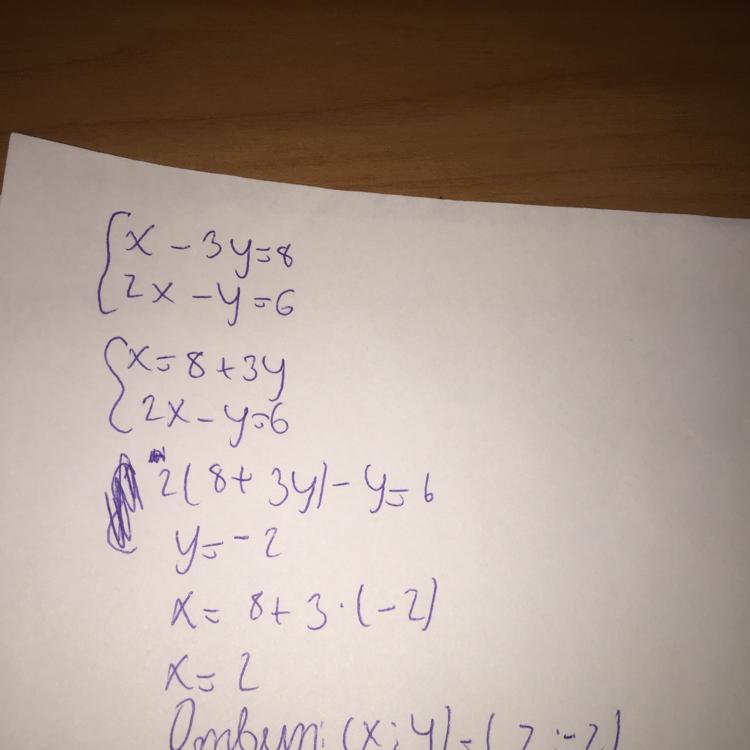 x - 3y = 8
2x - y = 6
x = 8 + 3y
2x - y = 6
2(8 + 3y) - y = 6
y = -2
x = 8 + 3 · (-2)
x = 2
Ответ: (x; y) = (2; -2)